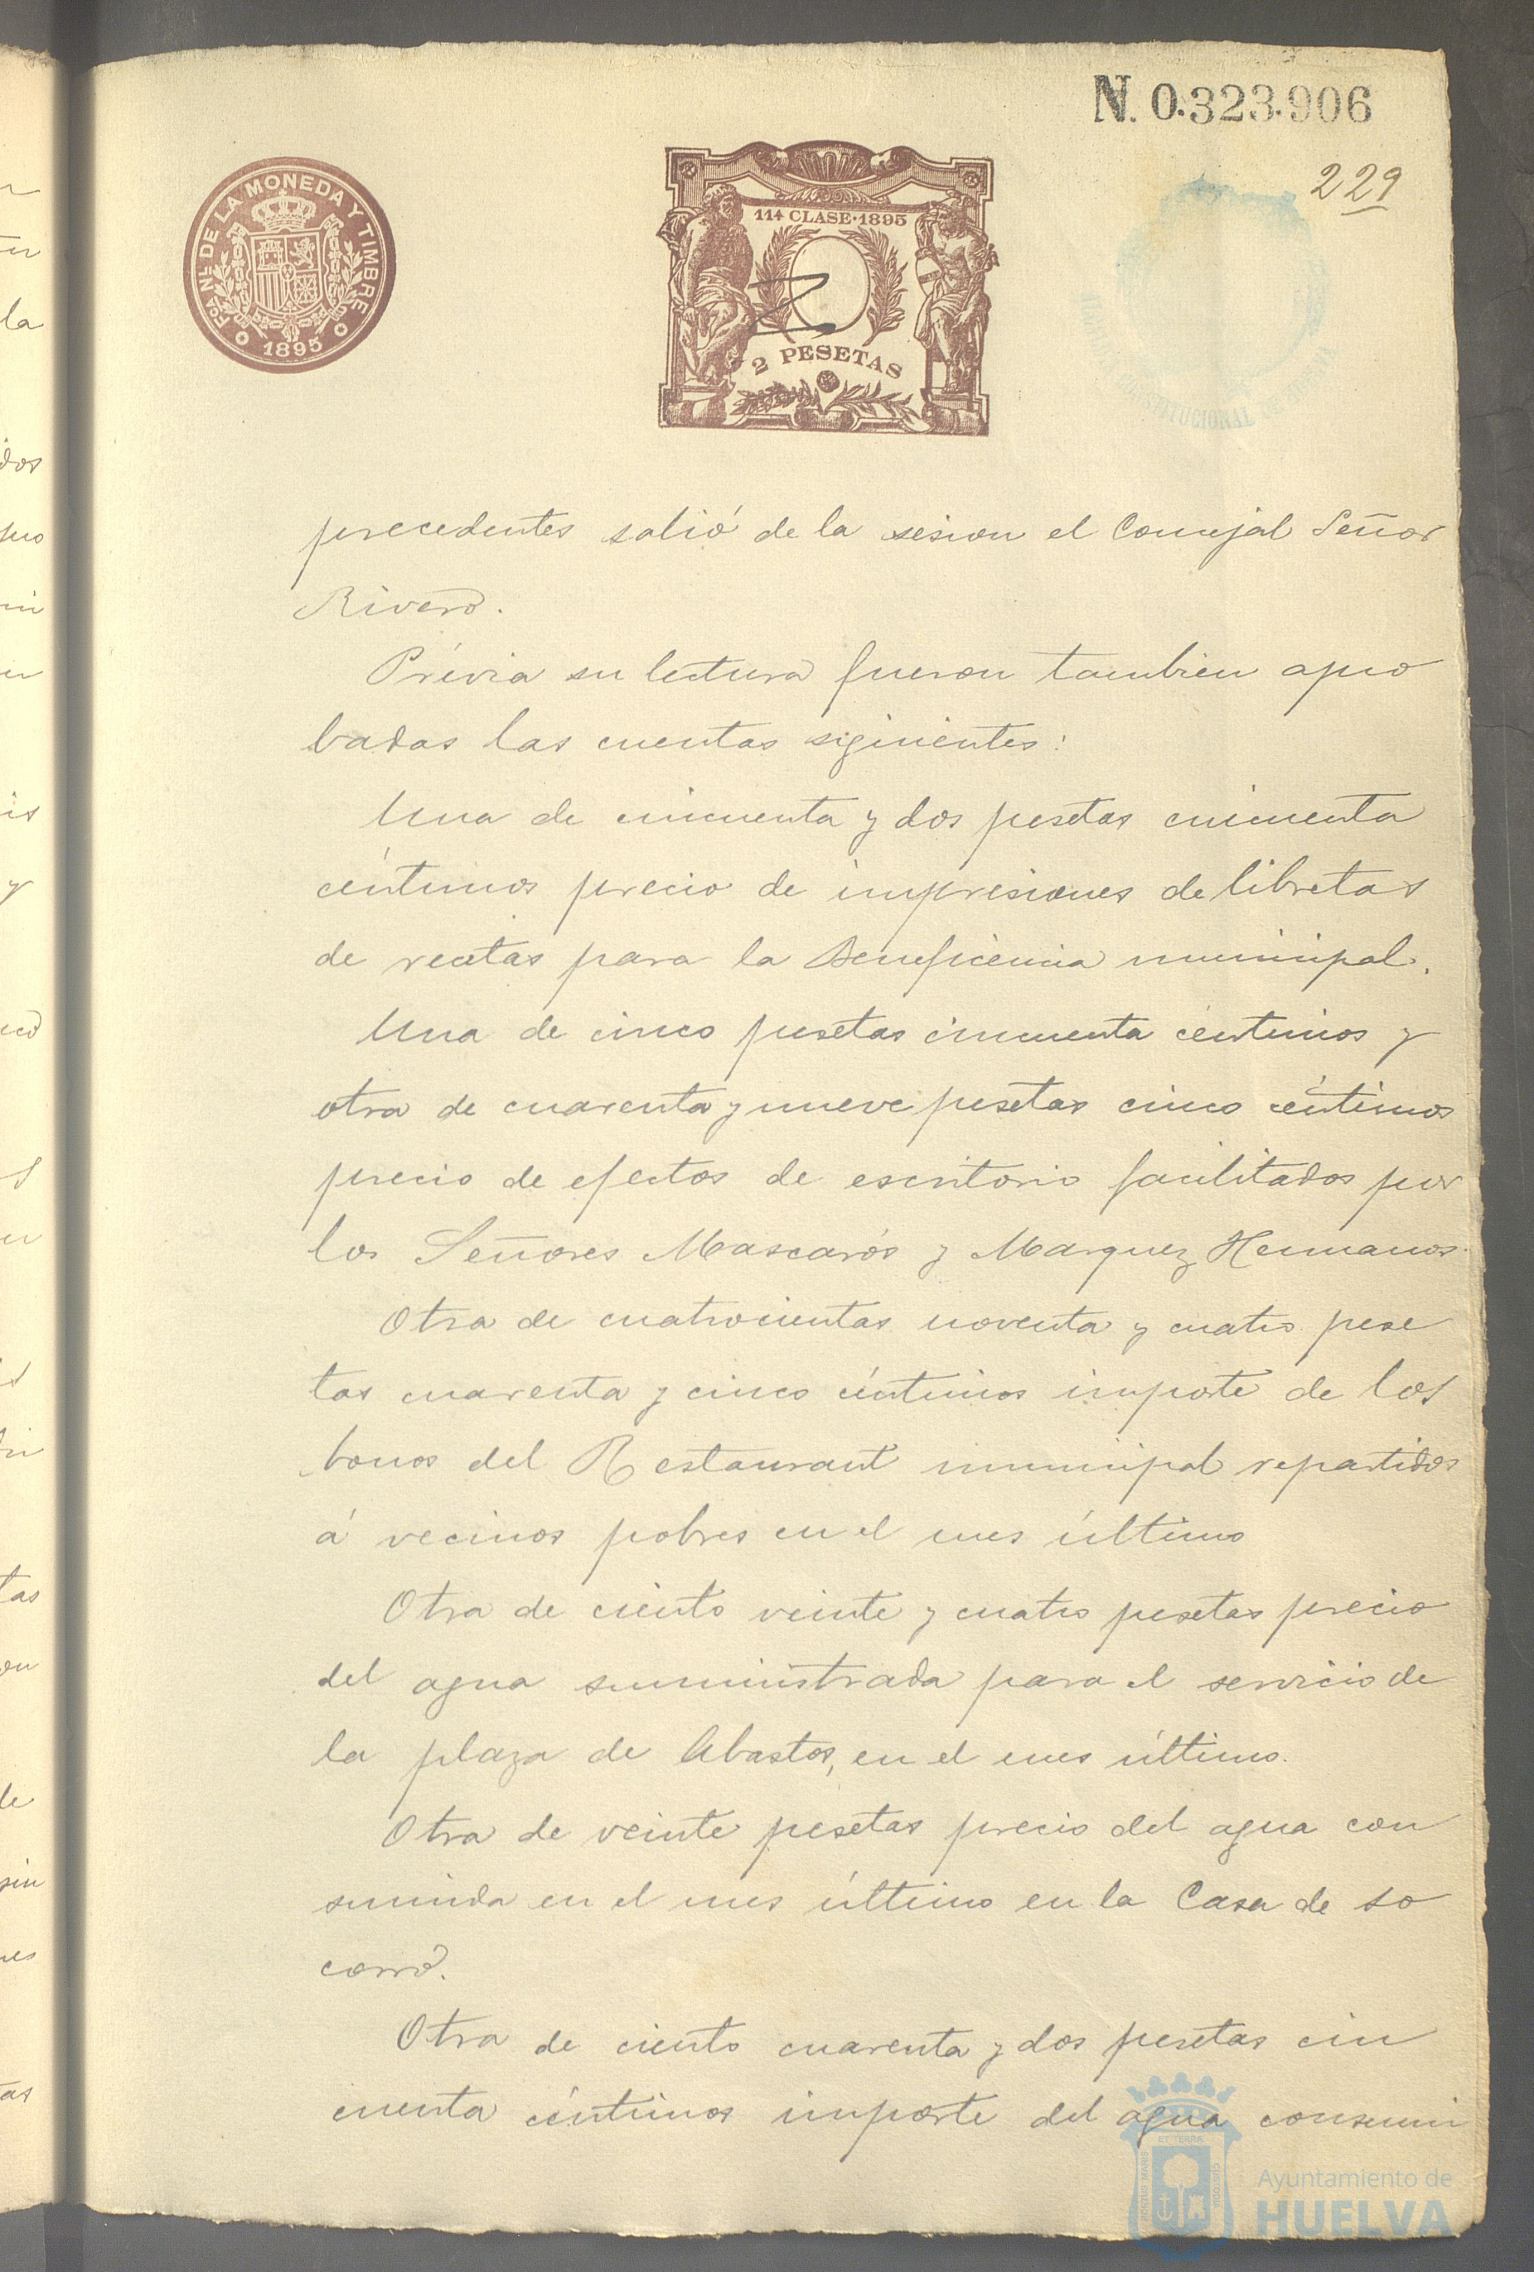 N. 0.323.906
229
Fca. Nl. DE LA MONEDA Y TIMBRE
1895
11ª CLASE·1895
2 PESETAS
precedentes salió de la sesion el Concejal Señor
Rivero.
Prévia su lectura fueron tambien apro
badas las cuentas siguientes:
Una de cincuenta y dos pesetas cincuenta
céntimos precio de impresiones de libretas
de recetas para la Beneficencia municipal.
Una de cinco pesetas cincuenta céntimos y
otra de cuarenta y nueve pesetas cinco céntimos
precio de efectos de escritorio facilitados por
los Señores Mascarós y Marquez Hermanos.
Otra de cuatrocientas noventa y cuatro pese
tas cuarenta y cinco céntimos importe de los
bonos del Restaurant municipal repartidos
á vecinos pobres en el mes último
Otra de ciento veinte y cuatro pesetas precio
del agua suministrada para el servicio de
la plaza de Abastos, en el mes último.
Otra de veinte pesetas precio del agua con
sumida en el mes último en la Casa de so
corro.
Otra de ciento cuarenta y dos pesetas cin
cuenta céntimos importe del agua consumi
Ayuntamiento de
HUELVA